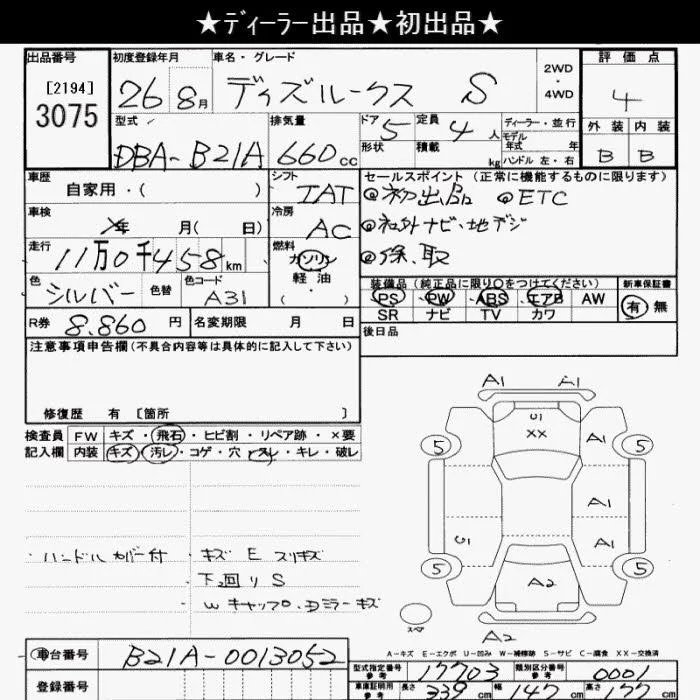 ★ディーラー出品★初出品★
出品番号 初度登録年月 車名・グレード 評価点
[2194]
3075
26 8月 ディズルークス S 2WD・4WD 4
型式 排気量 ドア 定員 ディーラー・並行 外装 内装
DBA-B21A 660cc 5 4人 モデル年式 年 B B
形状 積載 kg ハンドル 左・右
車歴 シフト セールスポイント(正常に機能するものに限ります)
自家用・( ) IAT ◎初出品 ◎ETC
車検 冷房 ◎社外ナビ、地デジ
年 月( 日) AC
走行 燃料 ◎保、取
11万0千458km ガソリン
軽油
・( )
色 色替 色コード 装備品(純正品に限り○をつけてください) 新車保証書
シルバー A31 PS PW ABS エアB AW 有 無
SR ナビ TV カワ
R券 8.860円 名変期限 月 日 後日品
注意事項申告欄(不具合内容等は具体的に記入して下さい)
修復歴 有 [箇所 ]
検査員 FW キズ・飛石・ヒビ割・リペア跡・×要
記入欄 内装 キズ・汚レ・コゲ・穴・スレ・キレ・破レ
A1 A1
U1
XX
5 A1 5
A1
U1 A1
5 5
A2
スペア
A2
・ハンドルカバー付 ・キズ E スリキズ
下回り S
・W キャップ、ドミラーキズ
A-キズ E-エクボ U-凹み W-補修跡 S-サビ C-腐食 XX-交換済
車台番号 B21A-0013052 型式指定番号 参考 17703 類別区分番号 参考 0001
登録番号 車庫証明用 参考 長さ 339cm 幅 147cm 高さ 177cm